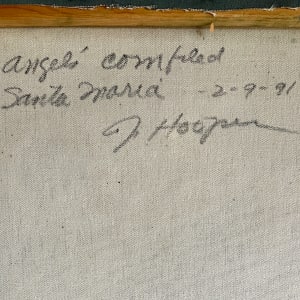 Angels compiled
Santa Maria -2-9-91
J Hooper